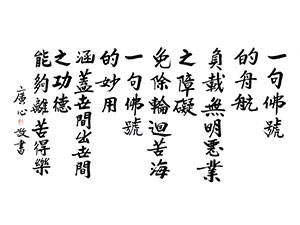 一句佛號
的舟航
負載無明惡業
之障礙
免除輪迴苦海
一句佛號
的妙用
涵蓋世間出世間
之功德
能夠離苦得樂
廣心敬書